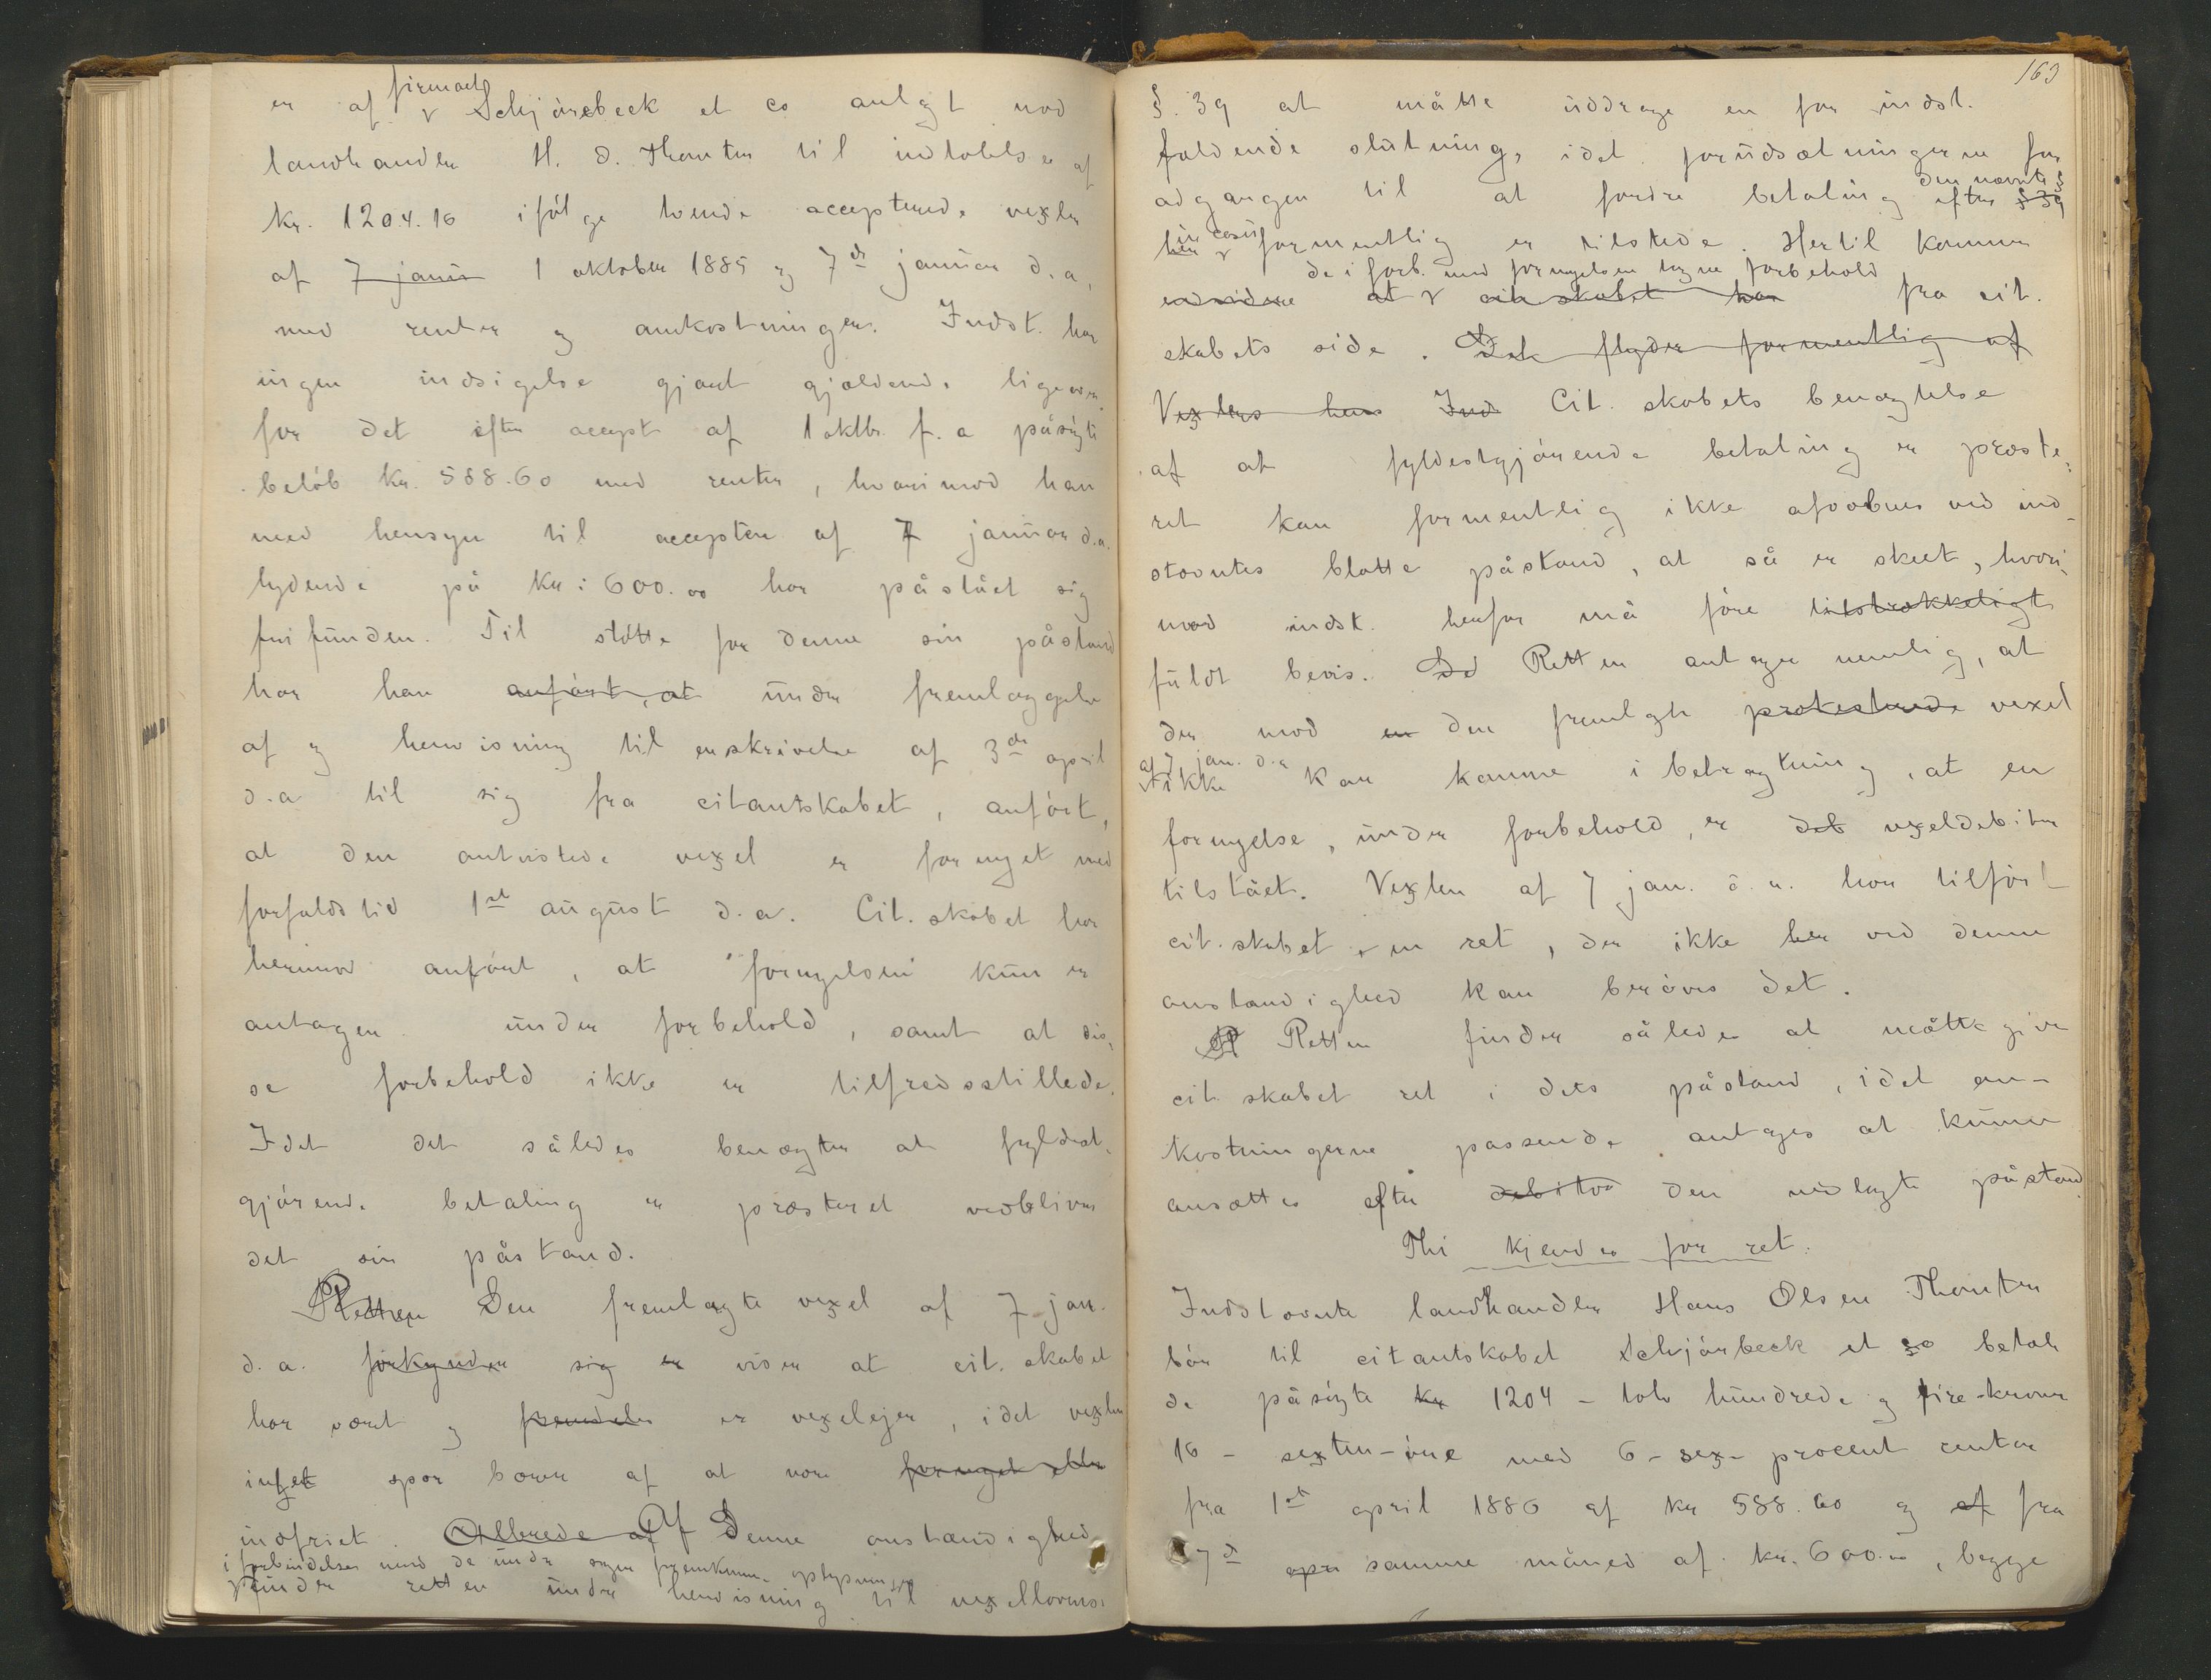 er af firmaet Schjørebeck et co anlgt mod
landhandler H. O. Thomter til indtalelse af
kr. 1204.16 ifølge tvende accepterede vexler
af 7 janu 1 oktober 1885 og 7de januar d.a,
med renter og omkostninger. Indst. har
ingen indsigelse gjort gjældende ligeover
for det efter accept af 1 oktbr. f. a påsøgte
beløb kr. 588.60 med renter, hvorimod han
med hensyn til accepten af 7 januar d.a.
lydende på Kr: 600.00 har påstået sig
frifunden. Til støtte for denne sin påstand
har han anført, at under fremlæggelse
af og henvisning til en skrivelse af 3de april
d.a til sig fra citantskabet, anført,
at den omtvistede vexel er fornyet med
forfaldstid 1st august d.a. Cit. skabet har
herimod anført, at "fornyelsen" kun er
antagen under forbehold, samt at dis-
se forbehold ikke er tilfredsstillede.
Idet det således benægter at fyldest-
gjørende betaling er præsteret vedbliver
det sin påstand.
Retten Den fremlagte vexel af 7 jan.
d.a. forkynder sig er viser at cit. skabet
har været og fremdeles er vexelejer, idet vexlen
intet spor bærer af at være fornyet eller
indfriet. Allerede af Af Denne omstændighed
i forbindelse med de under sagen fremkomne oplysninger
finder retten under henvisning til vexellovens
163
§. 39 at måtte uddrage en for indst.
fældende slutning, idet forudsætningerne for
adgangen til at fordre betaling efter § 39 den nævnte §
her in casu formentlig er tilstede. Hertil kommer
de i forb. med fornyelsen tagne forbehold
endvidere at cit skabet har fra cit.
skabets side. Det flyder formentlig af
Vexlens hen Ind Cit. skabets benægtelse
af at fyldestgjørende betaling er præste-
ret kan formentlig ikke afvæbnes ved ind-
stævntes blotte påstand, at så er skeet, hvori-
mod indst. herfor må føre tilstrækkeligt
fuldt bevis. Dd Retten antager nemlig, at
der mod en den fremlagte protesterede vexel
af 7 jan. d.a
ikke kan komme i betragtning, at en
fornyelse, under forbehold, er det vexeldebitor
tilstået. Vexlen af 7 jan. d. a. har tilført
cit. skabet en ret, der ikke her ved denne
omstændighed kan berøves det.
R Retten finder således at måtte give
cit skabet ret i dets påstand, idet om-
kostningerne passende antages at kunne
ansættes efter debitor den nedlagte påstand.
Thi kjendes for ret:
Indstævnte landhandler Hans Olsen Thomter
bør til citantskabet Schjørbeck et co betale
de påsøgte kr 1204 - tolv hundrede og fire - kroner
16 - sexten - øre med 6 - sex - procent renter
fra 1st april 1886 af kr 588.60 og af fra
7de apr samme måned af kr. 600.00, begge